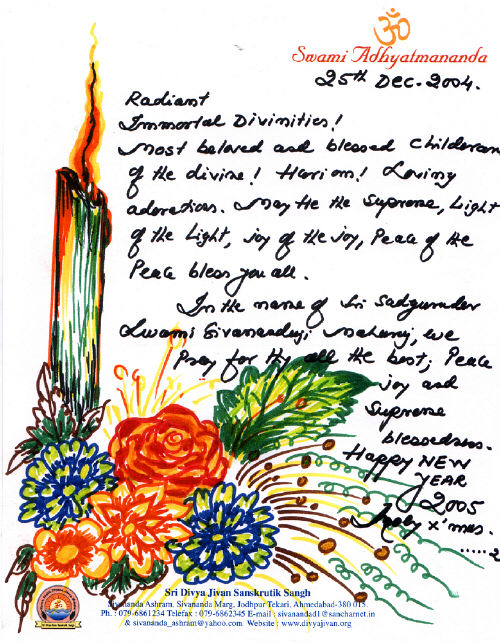 ॐ
Swami Adhyatmananda
25th Dec. 2004.
Radiant
Immortal Divinities!
Most beloved and blessed Childeran
of the divine! Hari om! Loving
adorations. May He the Supreme, Light
of the Light, joy of the joy, Peace of the
Peace bless you all.
In the name of Sri Sadgurudev
Swami Sivanandaji Maharaj, we
Pray for thy all the best; Peace
joy and
Supreme
blessedness.
Happy NEW
YEAR
2005
x'mas.
.....2
Sri Divya Jivan Sanskrutik Sangh
Sivananda Ashram, Sivananda Marg, Jodhpur Tekari, Ahmedabad-380 015.
Ph. : 079-6861234 Telefax : 079-6862345 E-mail : sivanandad1@sancharnet.in
& sivananda_ashram@yahoo.com Website : www.divyajivan.org